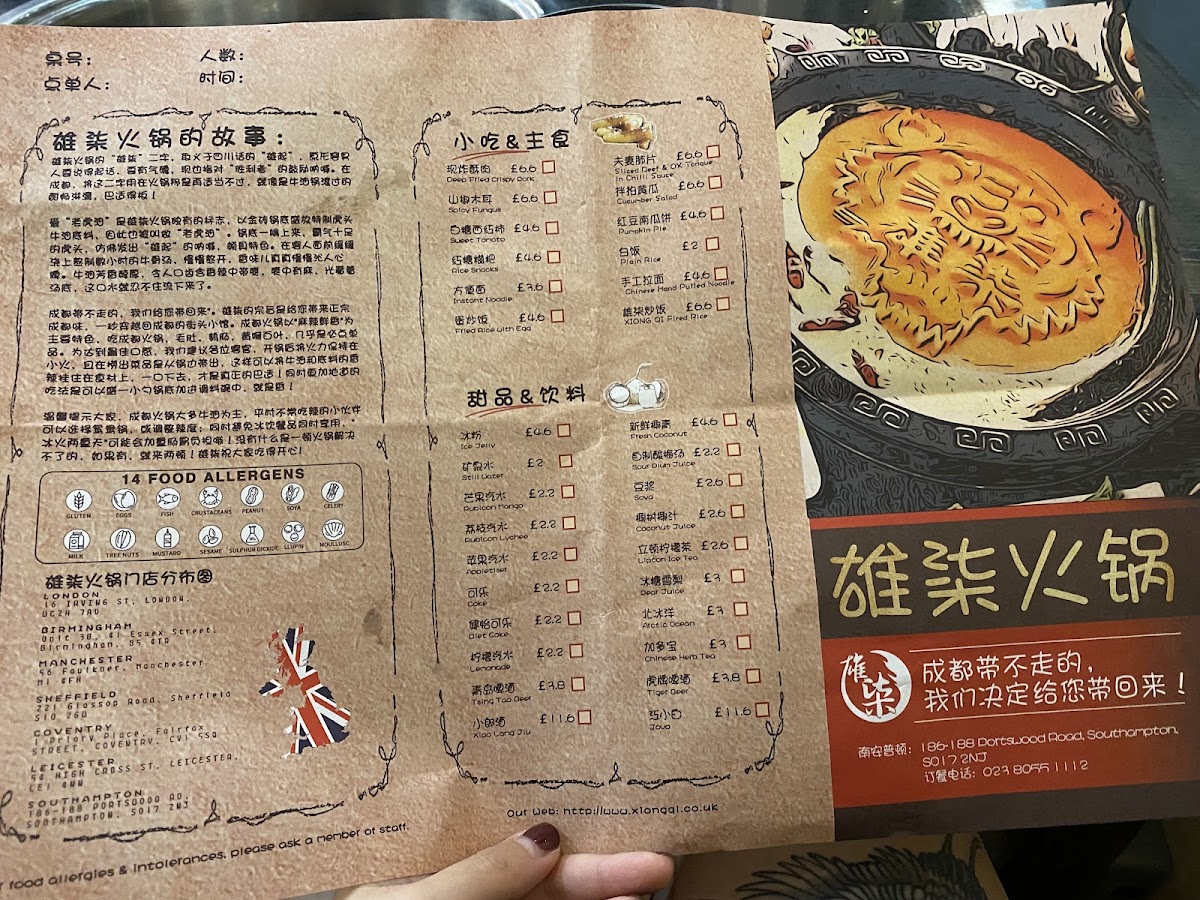 桌号：
人数：
点单人：
时间：
雄柒火锅的故事：
雄柒火锅的“雄柒”二字，取义于四川话的“雄起”，原形容男
人要说得起话，要有气魄，现也指对“胜利者”的鼓励呐喊。在
成都，将这二字用在火锅界是再适当不过，就像是牛油锅滚过的
畅滋润，巴适得板！
爱“老虎油”是雄柒火锅独有的标志，以金砖锅底盛放特制虎头
牛油底料，因此也被叫做“老虎油”。锅底一端上来，霸气十足
的虎头，仿佛发出“雄起”的呐喊，颇具特色。在客人面前缓缓
浇上熬制数小时的牛骨汤，慢慢熬开，香味儿真真慢慢沁人心
脾。牛油芳香醇厚，令人口齿含香辣中带麻，麻中有麻，光看着
汤底，这口水就忍不住流下来了。
成都带不走的，我们给您带回来”。雄柒的宗旨是给您带来正宗
成都味，一秒穿越回成都的街头小馆。成都火锅以“麻辣鲜香”为
主要特色，吃成都火锅，毛肚，鹅肠，黄喉百叶，几乎是必点单
品。为达到最佳口感，我们建议各位客官，开锅后将火力保持在
小火，且在捞出菜品是从锅边带出，这样可以将牛油和底料的香
辣挂住在食材上，一口下去，才是真正的巴适！同时更加地道的
吃法是可以盛一小勺锅底加进调料碗中，就是香！
温馨提示大家，成都火锅大多牛油为主，平时不常吃辣的小伙伴
可以选择鸳鸯锅，或调整辣度；同时避免冰饮餐品同时享用，“
冰火两重天”可能会加重肠胃负担哦！没有什么是一顿火锅解决
不了的，如果有，就来两顿！雄柒祝大家吃得开心！
14 FOOD ALLERGENS
GLUTEN EGGS FISH CRUSTACEANS PEANUT SOYA CELERY
MILK TREE NUTS MUSTARD SESAME SULPHUR DIOXIDE LUPIN MOLLUSC
雄柒火锅门店分布图
LONDON
16 IRVING ST, LONDON,
WC2H 7AU
BIRMINGHAM
Unit 3B, 41 Essex Street,
Birmingham, B5 4TR
MANCHESTER
56 Faulkner, Manchester
M1 4FH
SHEFFIELD
221 Glossop Road, Sheffield
S10 2GW
COVENTRY
1 Priory Place, Fairfax
STREET, COVENTRY, CV1 5SQ
LEICESTER
54 HIGH CROSS ST, LEICESTER,
LE1 4NN
SOUTHAMPTON
186-188 PORTSWOOD RD,
SOUTHAMPTON, SO17 2NJ
food allergies & intolerances, please ask a member of staff.
小吃&主食
现炸酥肉 £6.6
Deep Fried Crispy Pork
山椒木耳 £6.6
Spicy Fungus
白糖西红柿 £4.6
Sweet Tomato
红糖糍粑 £4.6
Rice Snacks
方便面 £3.6
Instant Noodle
蛋炒饭 £4.6
Fried Rice with Egg
夫妻肺片 £6.6
Sliced Beef & OX Tongue
in Chilli Sauce
拌拍黄瓜 £6.6
Cucumber Salad
红豆南瓜饼 £4.6
Pumpkin Pie
白饭 £2
Plain Rice
手工拉面 £4.6
Chinese Hand Pulled Noodle
雄柒炒饭 £6.6
XIONG QI Fired Rice
甜品&饮料
冰粉 £4.6
Ice Jelly
矿泉水 £2
Still Water
芒果汽水 £2.2
Rubicon Mango
荔枝汽水 £2.2
Rubicon Lychee
苹果汽水 £2.2
Appletiser
可乐 £2.2
Coke
健怡可乐 £2.2
Diet Coke
柠檬汽水 £2.2
Lemonade
青岛啤酒 £3.8
Tsing Tao Beer
小郎酒 £11.6
Xiao Lang Jiu
新鲜椰青 £4.6
Fresh Coconut
自制酸梅汤 £2.2
Sour Plum Juice
豆浆 £2.6
Soya
椰树椰汁 £2.6
Coconut Juice
立顿柠檬茶 £2.6
Lipton Ice Tea
冰糖雪梨 £3
Pear Juice
北冰洋 £3
Arctic Ocean
加多宝 £3
Chinese Herb Tea
虎牌啤酒 £3.8
Tiger Beer
江小白 £11.6
Our Web: http://www.xiongqi.co.uk
雄柒火锅
雄柒
成都带不走的，
我们决定给您带回来！
南安普顿：186-188 Portswood Road, Southampton,
SO17 2NJ
订餐电话：023 8055 1112